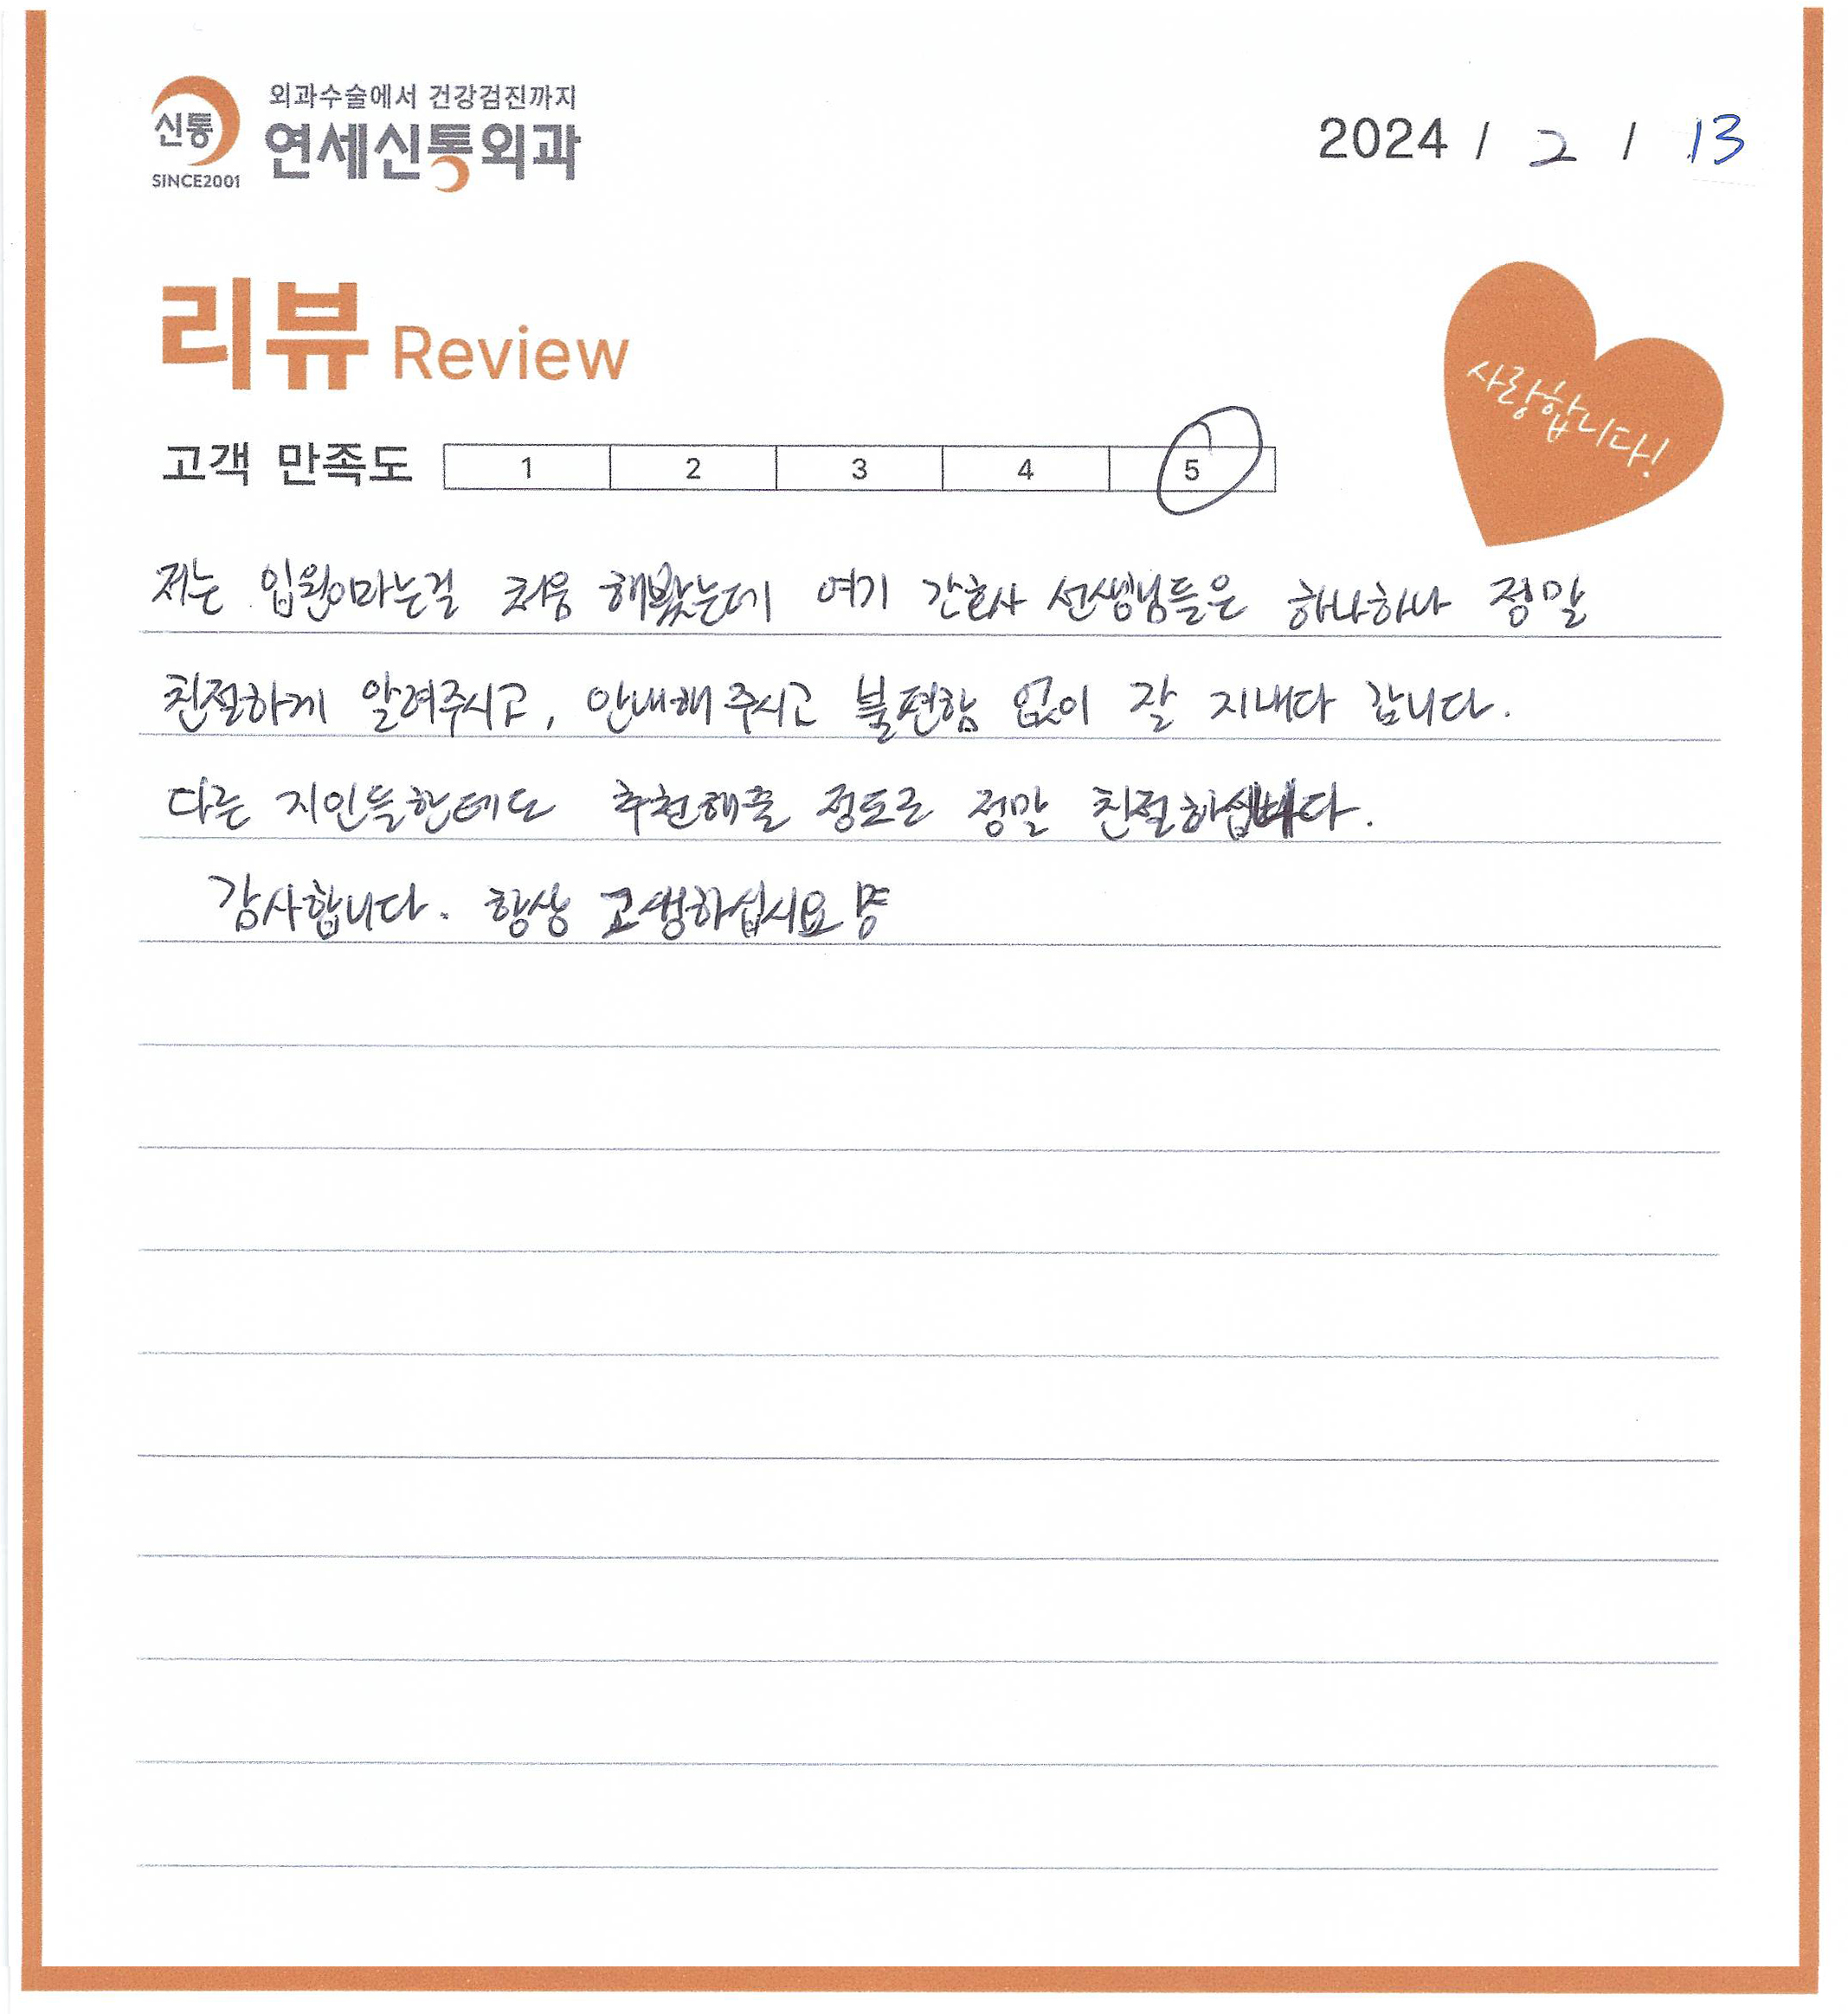 신통
SINCE2001
외과수술에서 건강검진까지
연세신통외과
2024 / 2 / 13
리뷰 Review
사랑합니다!
고객 만족도 1 2 3 4 5
저는 입원이라는걸 처음 해봤는데 여기 간호사 선생님들은 하나하나 정말
친절하게 알려주시고, 안내해 주시고 불편함 없이 잘 지내다 갑니다.
다른 지인들한테도 추천해줄 정도로 정말 친절하십니다.
감사합니다. 항상 고생하십시요